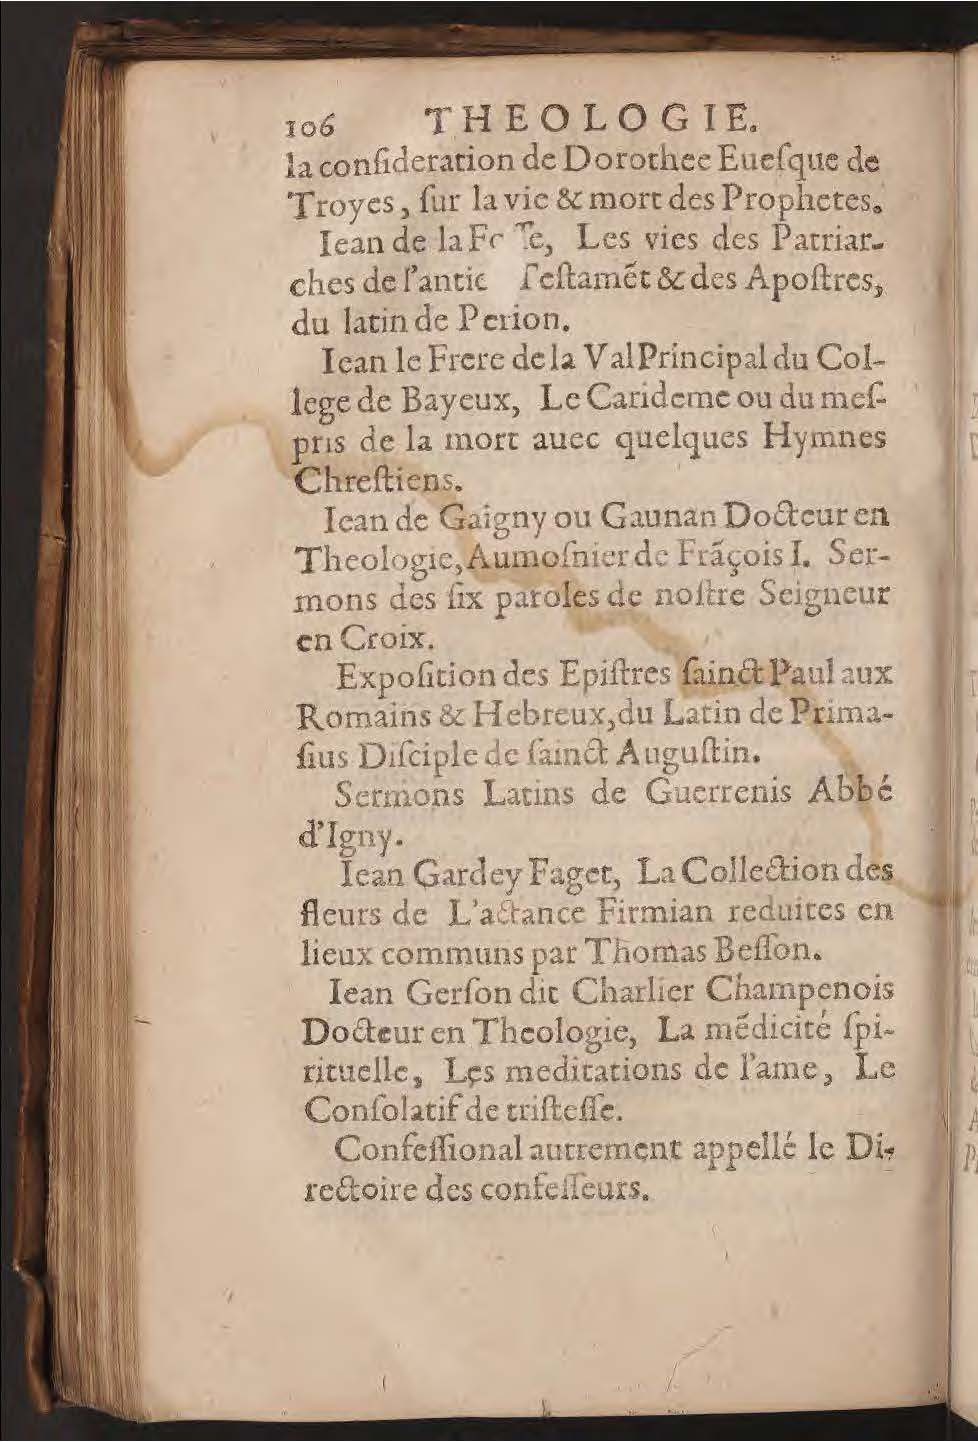 106 THEOLOGIE.
la conſideration de Dorothee Eueſque de
Troyes, ſur la vie & mort des Prophetes.
Iean de la Les vies des Patriar-
ches de l'antic Teſtamẽt & des Apoſtres,
du latin de Perion.
Iean le Frere de la Val Principal du Col-
lege de Bayeux, Le Carideme ou du meſ-
pris de la mort auec quelques Hymnes
Chreſtiens.
Iean de Gaigny ou Gaunan Docteur en
Theologie, Aumoſnier de Frãçois I. Ser-
mons des ſix paroles de noſtre Seigneur
en Croix.
Expoſition des Epiſtres ſainct Paul aux
Romains & Hebreux, du Latin de Prima-
ſius Diſciple de ſainct Auguſtin.
Sermons Latins de Guerrenis Abbé
d'Igny.
Iean Gardey Faget, La Collection des
fleurs de L'actance Firmian reduites en
lieux communs par Thomas Beſſon.
Iean Gerſon dit Charlier Champenois
Docteur en Theologie, La mẽdicité ſpi-
rituelle, Les meditations de l'ame, Le
Conſolatif de triſteſſe.
Confeſſional autrement appellé le Di-
rectoire des confeſſeurs.